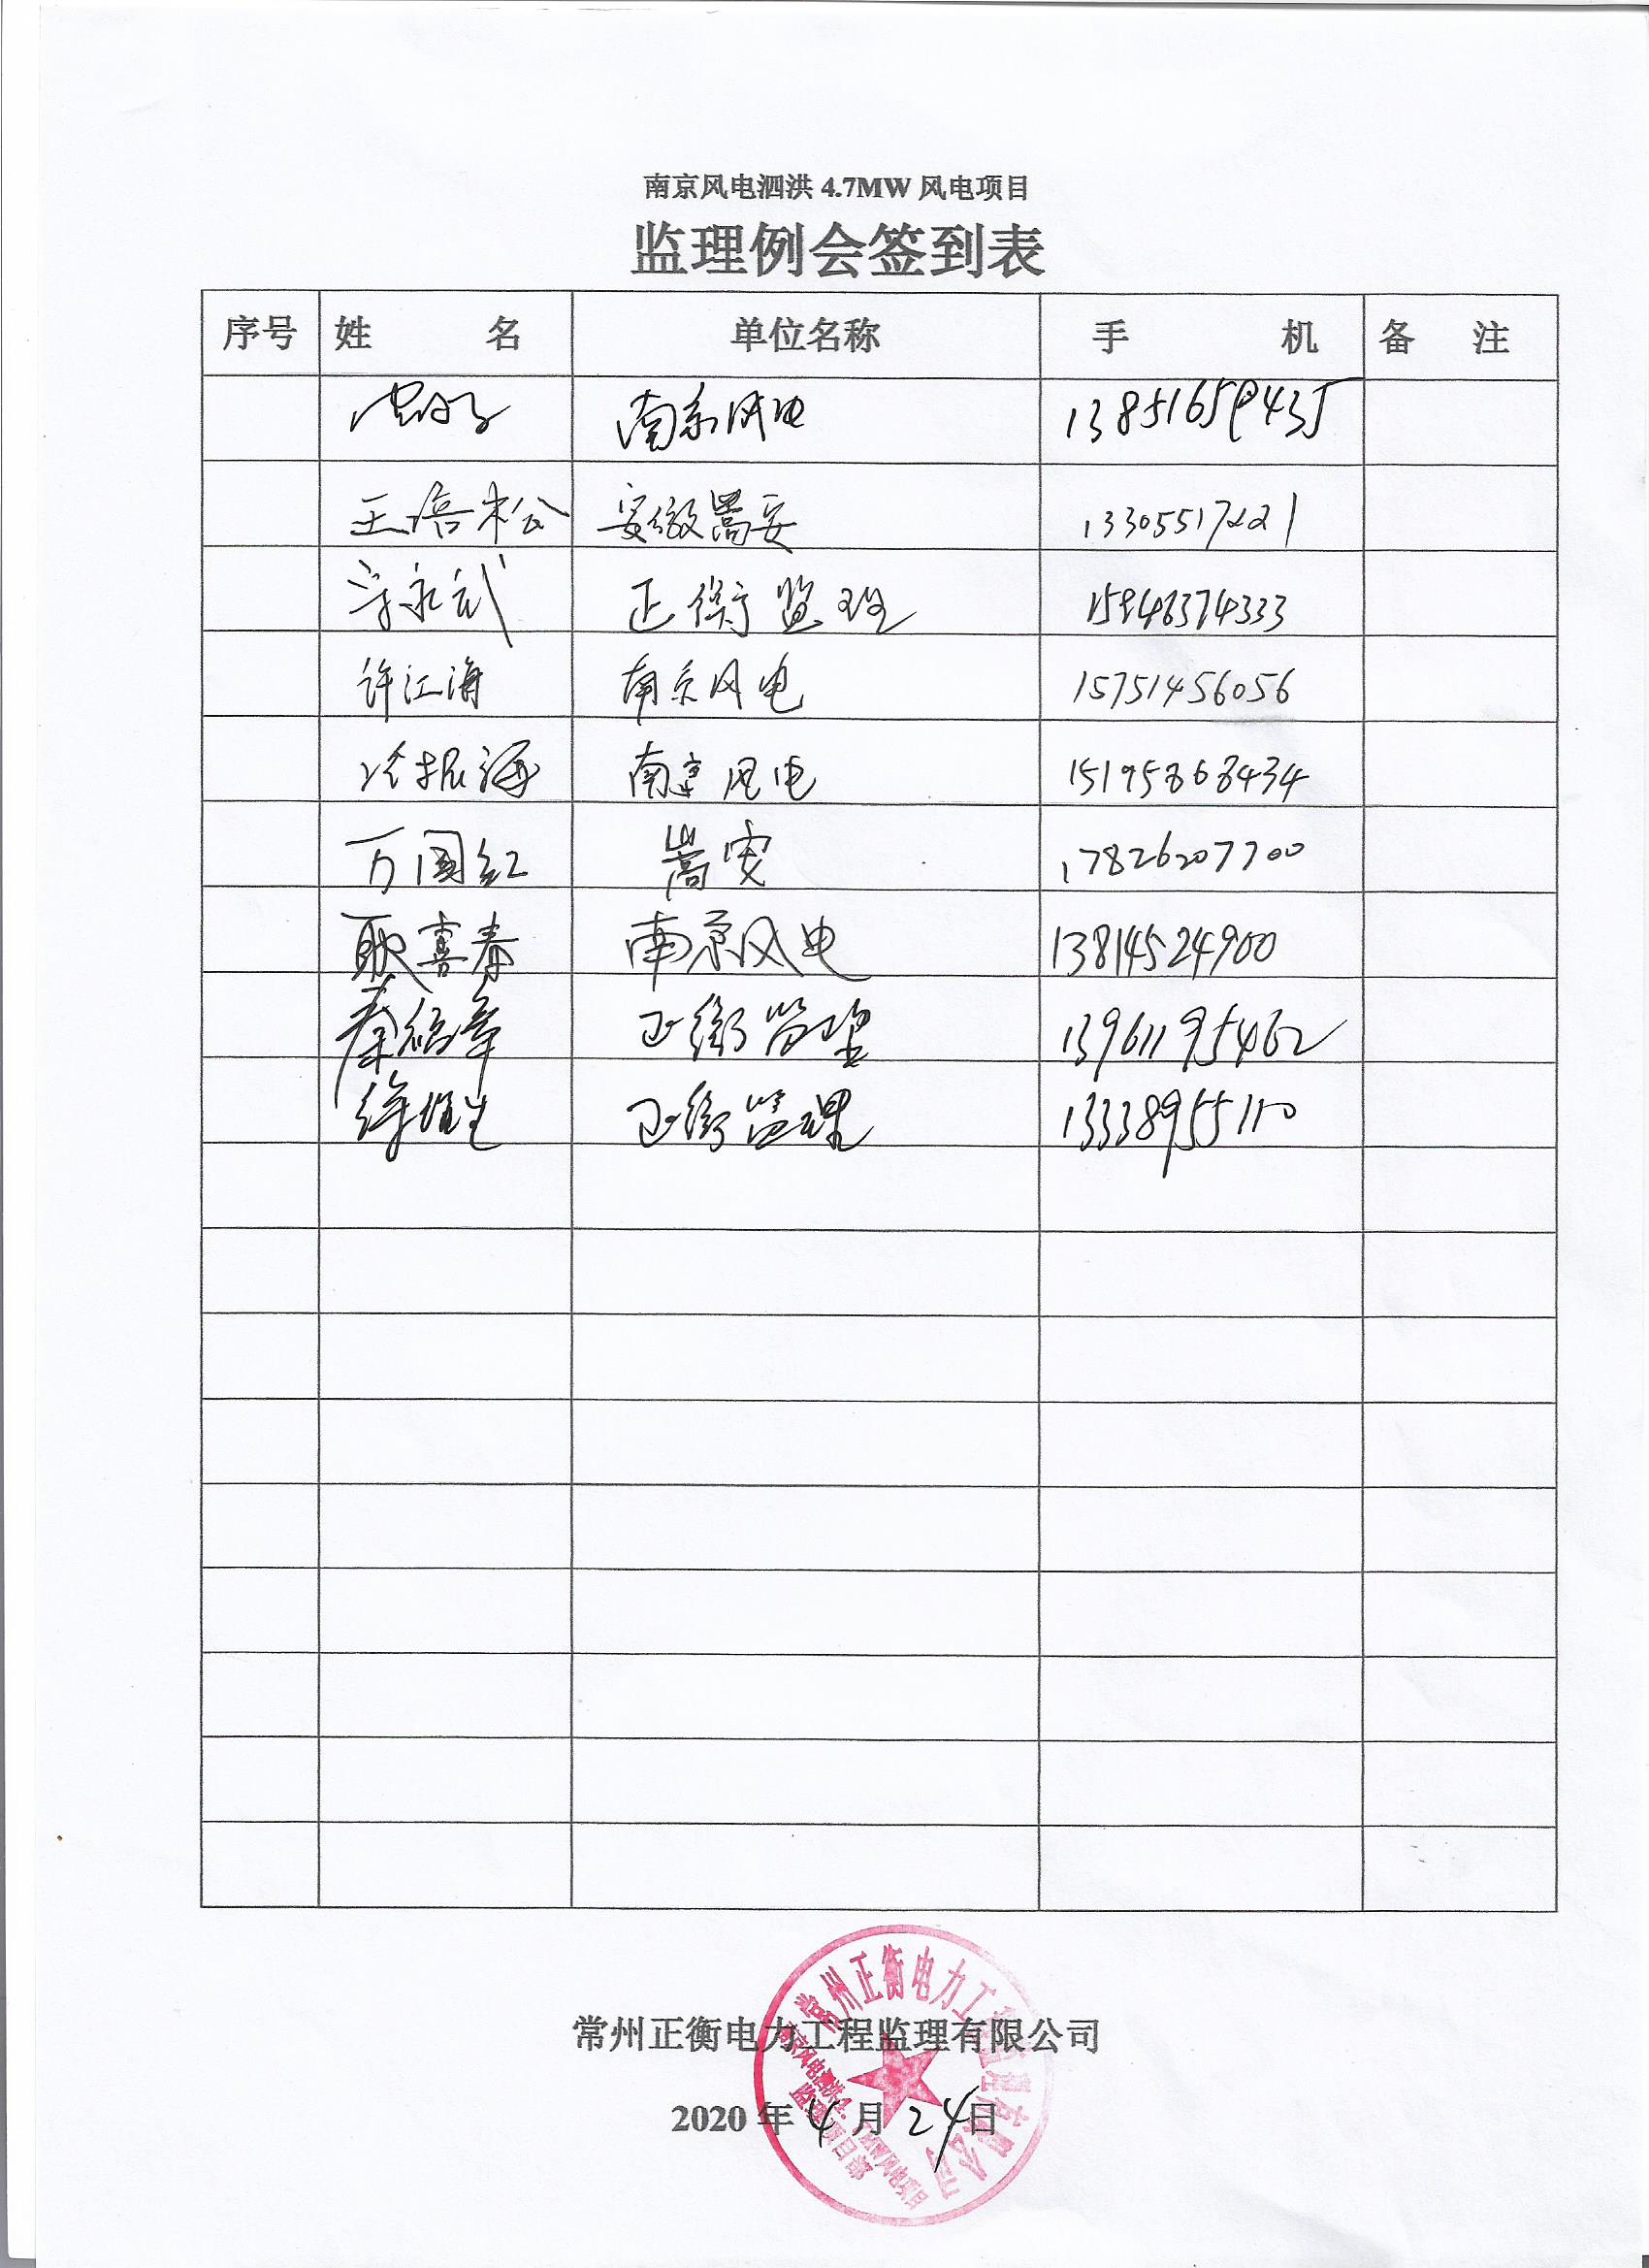 南京风电泗洪 4.7MW 风电项目
监理例会签到表
序号 姓 名 单位名称 手 机 备 注
南京风电 13851659435
王培松 安徽嵩安 13305517221
永武 正衡监理 15846374333
许江海 南京风电 15751456056
冷振海 南京风电 15195868434
万国红 嵩安 17826207700
耿喜春 南京风电 13814524900
秦绍章 正衡监理 13961195462
正衡监理 13338955110
常州正衡电力工程监理有限公司
2020 年 4 月 24 日
常州正衡电力工程监理有限公司
南京风电泗洪4.7MW风电项目
监理项目部